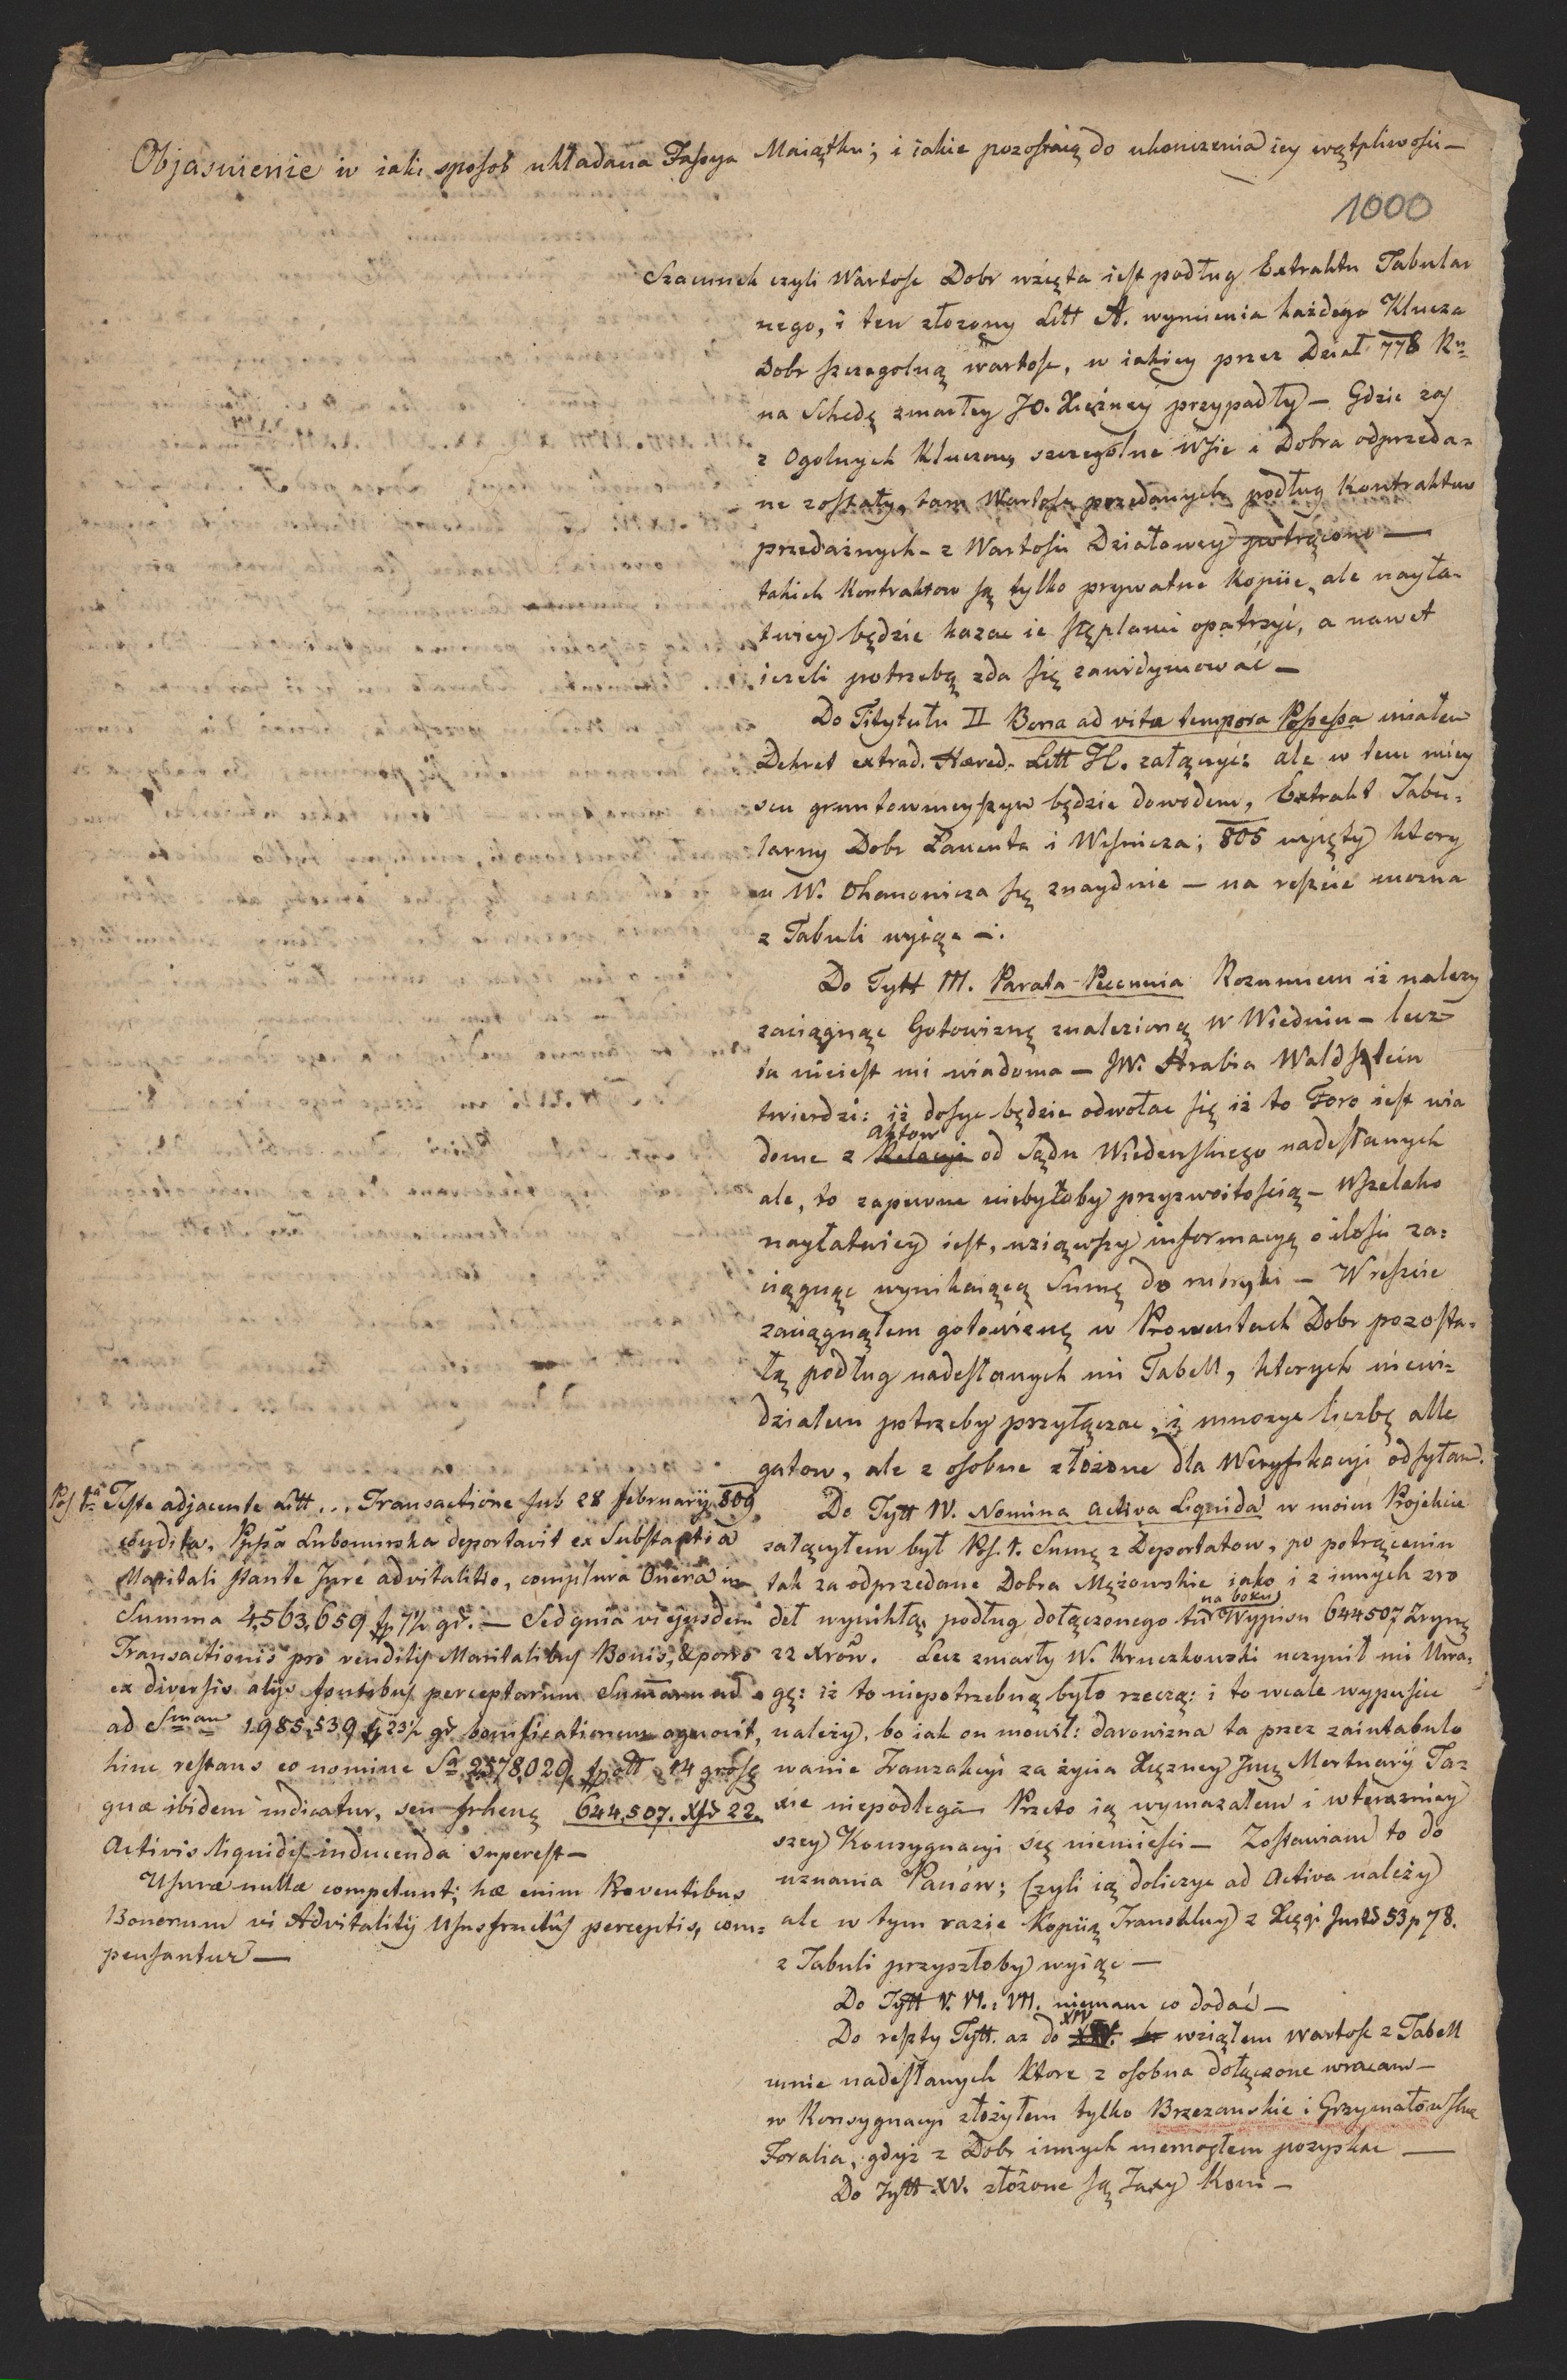 Objasnienie w iaki sposob układana Fassya Maiątku; i iakie pozostaią do ukonczenia iey wątpliwości —
1000
Szacunek czyli Wartosc Dobr wzięta iest podług Extraktu Tabular
nego, i ten złozony Litt A. wymienia każdego Klucza
Dobr szczegolną wartosc, w iakiey przez Dział 778 Ru
na Schedę zmarłey JO. Xiężney przypadły — Gdzie zaś
z Ogolnych Kluczow szczegolne wsie i Dobra odprzeda=
ne zostały, tam Wartosc przedanych podług Kontraktow
przedażnych - z Wartości Działowey potrącono —
takich Kontraktow są tylko prywatne Kopiie, ale nayła-
twiey będzie kazac ie stęplami opatrzyć, a nawet
ieżeli potrzebą zda się zawidymować —
Do Titytułu II Bona ad vitæ tempora Possessa miałem
Dekret extrad. Hæred. Litt H. załączyć: ale w tem miey
scu gruntownieyszym będzie dowodem, Extrakt Tabu=
larny Dobr Łancuta i Wisnicza; 805 wyięty ktory
u W. Ohanowicza się znayduie — na reszcie mozna
z Tabuli wyiąc —.
Do Tytt III. Parata Pecunia Rozumiem iż nalezy
zaciągnąc Gotowiznę znalezioną w Wiedniu — lecz
ta nieiest mi wiadoma — JW. Hrabia Waldsztein
twierdzi: iż dosyc będzie odwołac się iż to Foro iest wia
aktow
dome z Relacyi od Sądu Wiedenskiego nadesłanych
ale, to zapewne niebyłoby przyzwoitością — Wszelako
nayłatwiey iest, wziąwszy informacyą o ilosci za=
ciągnąc wynikaiącą Summę do rubryki — Wreszcie
zaciągnąłem gotowiznę w Prowentach Dobr pozosta=
łą podług nadesłanych mi Tabell, ktorych niewi=
działem potrzeby przyłączac, i mnozyc liczbę alle
gatow, ale z osobna złozone dla Weryfikacyi odsyłam.
Do Tytt IV. Nomina activa Liquida w moim Projekcie
załączyłem był Ps. 1. Sumę z Deportatow, po potrąceniu
tak za odprzedane Dobra Mężowskie iako i z innych zro
na boku
deł wynikłą podług dołączonego tu Wypisu 644507 Zryng
22 Xrow. Lecz zmarły W. Kruczkowski uczynił mi Uwa=
gę: iż to niepotrzebną było rzeczą: i to wcale wypuscic
należy, bo iak on mowił: darowizna ta przez zaintabulo
wanie Tranzakcyi za życia Xiężney Jmę Mortuarii Ta=
xie niepodlega Przeto ią wymazałem i w teraznicy
szey Konsygnacyi się niemiesci — Zostawiam to do
uznania Panów; czyli ią doliczyc ad Activa należy
ale w tym razie Kopiią Tranakcyi z Xięgi Instr 53 p 78.
z Tabuli przyszłoby wyiąc —
Do Tytt V. VI.: VII. niemam co dodać —
XIV
Do reszty Tytt. az do XIV. wziąłem wartosc z Tabell
mnie nadesłanych ktore z osobna dołączone wracam —
w Konsygnacyi złożyłem tylko Brzezanskie i Grzymałowskie
Foralia, gdyż z Dobr innych niemogłem pozyskac —
Do Tytt XV. złożone są Taxy Koni —
Pos 1a Teste adjacente Litt... Transactione sub 28 februarij 809
condita, Ppssa Lubomirska deportavit ex Substantia
Maritali stante Jure advitalitio, complura Onera in
Summa 4,563,659 fp 7½ gr. — Sed quia vi ejusdem
Transactionis pro venditis Maritalibus Bonis, & porro
ex diversis alijs fontibus perceptarum Summarum
ad Smam 1,985,539 fp 23½ gr bonificationem agnovit,
hinc restans eo nomine Sa 2578,020 fpoll 14 gross
quæ ibidem indicatur, seu frheng 644,507. Xfr 22.
Activis liquidis inducenda superest —
Usuræ nullæ competunt; hæ enim Proventibus
Bonorum vi Advitalitij Ususfructus perceptis, com=
pensantur —